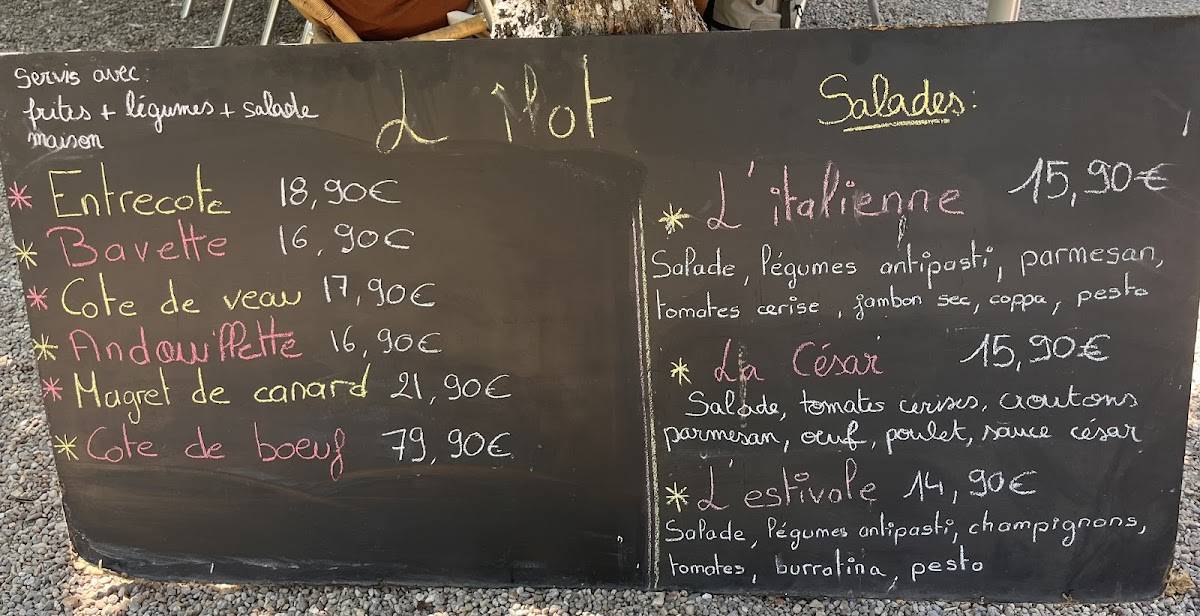 Servis avec:
frites + légumes + salade
maison
L'îlot
* Entrecote 18,90€
* Bavette 16,90€
* Cote de veau 17,90€
* Andouillette 16,90€
* Magret de canard 21,90€
* Cote de boeuf 79,90€
Salades:
* L'italienne 15,90€
Salade, légumes antipasti, parmesan,
tomates cerise, jambon sec, coppa, pesto
* La César 15,90€
Salade, tomates cerises, croutons
parmesan, oeuf, poulet, sauce césar
* L'estivale 14,90€
Salade, légumes antipasti, champignons,
tomates, burratina, pesto